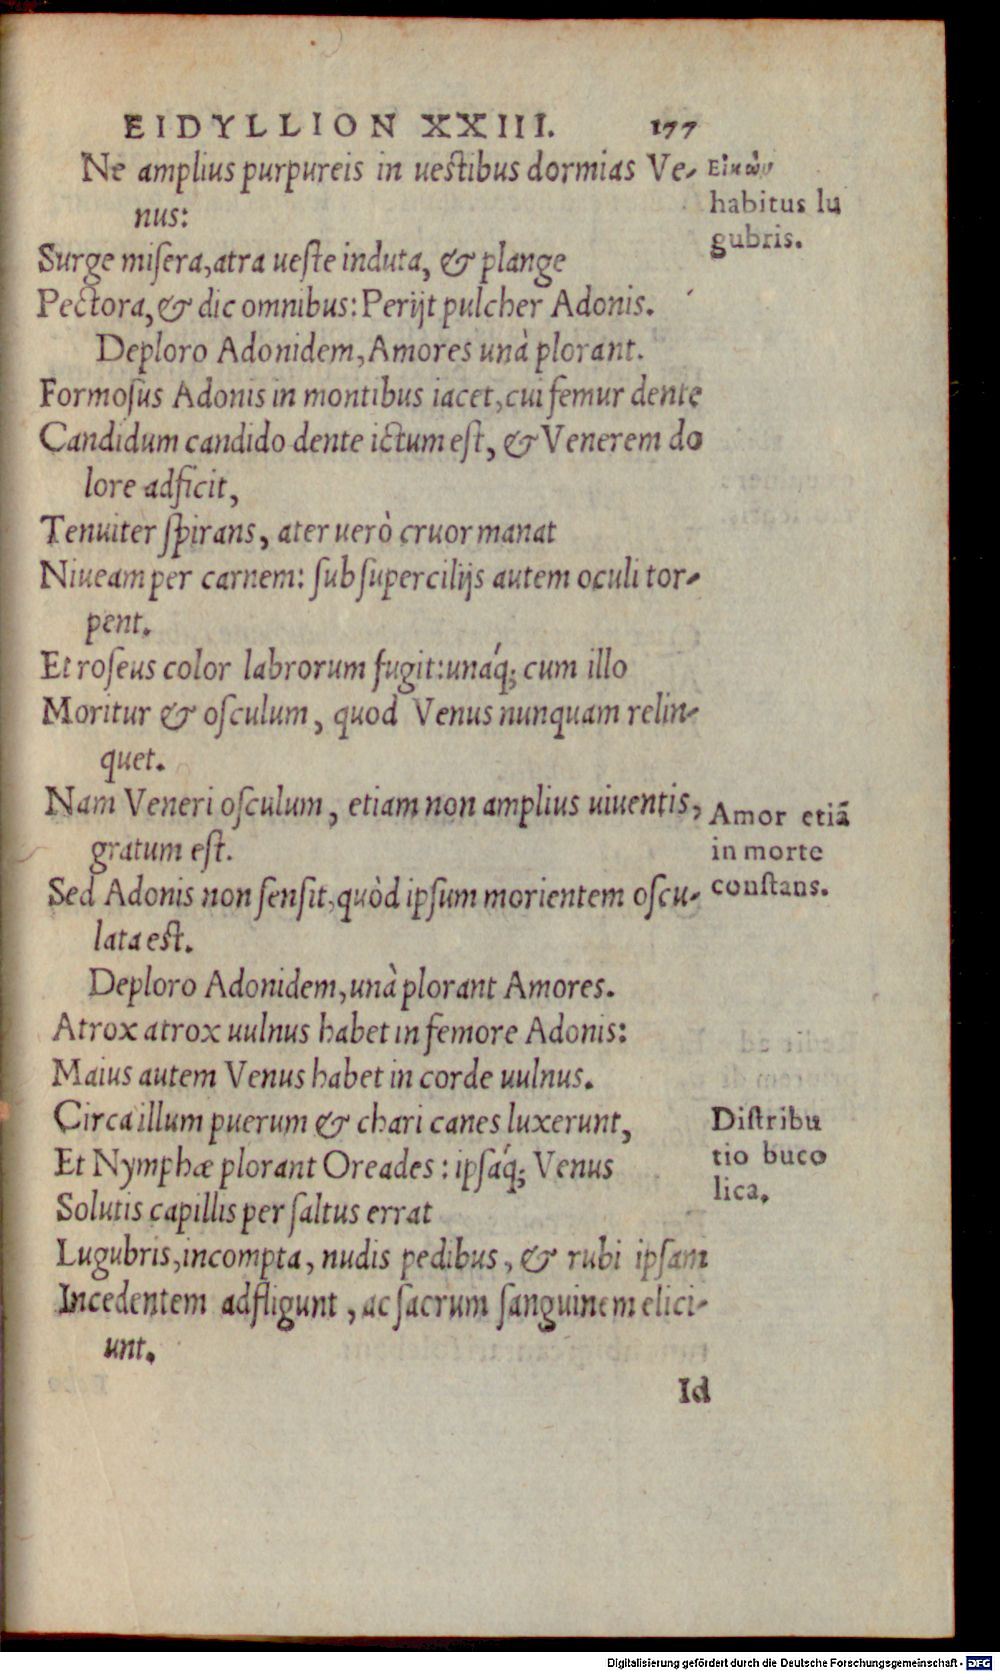 EIDYLLION XXIII. 177
Ne amplius purpureis in uestibus dormias Ve-
nus:
Surge misera, atra ueste induta, & plange
Pectora, & dic omnibus: Perijt pulcher Adonis.
Deploro Adonidem, Amores unà plorant.
Formosus Adonis in montibus iacet, cui femur dente
Candidum candido dente ictum est, & Venerem do
lore adficit,
Tenuiter spirans, ater uerò cruor manat
Niueam per carnem: sub supercilijs autem oculi tor-
pent.
Et roseus color labrorum fugit: unáq; cum illo
Moritur & osculum, quod Venus nunquam relin-
quet.
Nam Veneri osculum, etiam non amplius uiuentis,
gratum est.
Sed Adonis non sensit, quòd ipsum morientem oscu-
lata est.
Deploro Adonidem, unà plorant Amores.
Atrox atrox uulnus habet in femore Adonis:
Maius autem Venus habet in corde uulnus.
Circa illum puerum & chari canes luxerunt,
Et Nymphæ plorant Oreades: ipsáq; Venus
Solutis capillis per saltus errat
Lugubris, incompta, nudis pedibus, & rubi ipsam
Incedentem adfligunt, ac sacrum sanguinem elici-
unt.
Id
Εἰκὼν
habitus lu
gubris.
Amor etiā
in morte
constans.
Distribu
tio buco
lica.
Digitalisierung gefördert durch die Deutsche Forschungsgemeinschaft - DFG